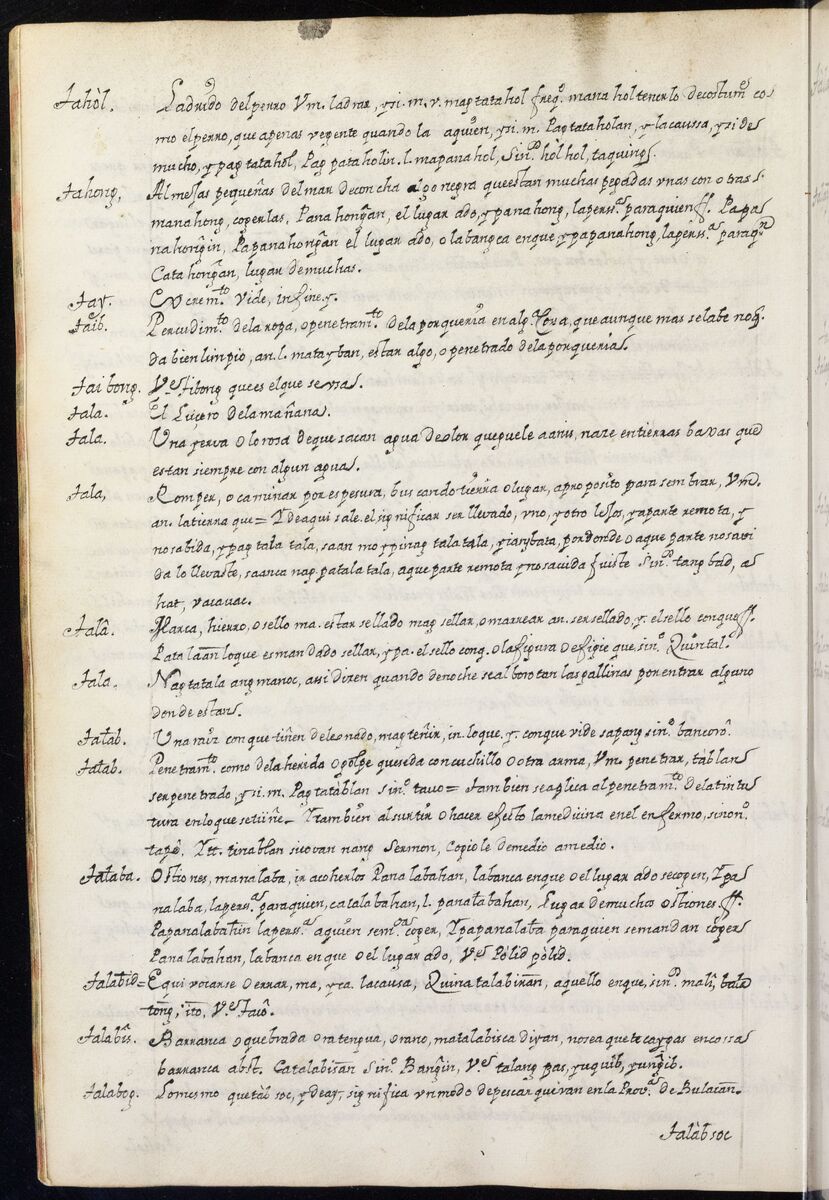 Tahòl. Ladrido del perro Vm. ladrar, ysi. m. v. mag tatahol freqº. mana hol tenerlo de costumᵉ co-
mo el perro, que apenas ve gente quando la aquien, ysi. m. Pag tata holan, y la caussa, ysi de
mucho, y pag tatahol, Pag pataholin. l. mapanahol, Sinº hòl hol, taquing.
Tahong, Almejas pequeñas del mar de concha algo negra que estan muchas pegadas vnas con otras
manahong, cogerlas, Pana hongan, el lugar ado, y panahong, la persª para quien ff. Papa
nahongin, Papanahongan el lugar ado, o la bangca enque y papanahong, la persª paraqⁿ
Catahongan, lugar de muchas.
Tay. Excremᵗº vide, in fine y.
Taib. Percudimᵗº de la ropa, o penetramᵗº de la porqueria en alg. cosa, que aunque mas se labe no q.
da bien limpio, an. l. matayban, estar algo, o penetrado de la porqueria.
Taibong. Vᵉ Tibong que es el que se vsa.
Tala. El Luçero de la mañana.
Tala. Una yerva olorosa de que sacan agua de olor que guele a anis, naze en tierras baxas que
estan siempre con algun agua.
Tala, Romper, o caminar por espesura, buscando tierra o lugar, a proposito para sembrar, Vm.
an. la tierra que = Y de aqui sale el significar ser llevado, vno, y otro lejos, y a parte remota, y
no sabida, y pag tala tala, saan mo ypinag talatala, por donde o a que parte no savi
da lo llevaste, saanca nag patalatala, a que parte remota y no savida fuiste Sinº tangbad, as
hat, vacavac.
Talâ. Marca, hierro, o sello ma. estar sellado mag sellar, o marcar an. ser sellado, y. el sello conque ff.
Patalaan lo que es mandado sellar, ypa. el sello conq. o la figura o efigie que sinº Quintal.
Tala. Nagtatala ang manoc, assi dicen quando de noche se alborotan las gallinas por entrar alguno
donde estan.
Talab. Una raiz con que tiñen de leonado, mag teñir, in. lo que. y. conque vide sapang sinº bancoro.
Talab. Penetramᵗº como de la herida o golpe que se da con cuchillo o otra arma, Vm. penetrar, tablan
ser penetrado, ysi. m. Pag tatàblan sinº tavo = tambien se aplica al penetramᵗº de la tintu
tura en lo que se tiñe _ Y tambien al surtir o hacer efecto la medicina en el enfermo, sinonº
tapê. Ytt. tinablan sicovan nang Sermon, cogiole de medio a medio.
Talaba. Ostiones, manalaba, ir a cogerlos Panalabahan, la banca en que o el lugar ado se cogen, Ypa
nalaba, la persª para quien, catalabahan, l. panatabahan, Lugar de muchos ostiones ff.
Papanalabahin la persª a quien semᵈª coger, Ypapanalaba para quien se mandan coger
Panalabahan, la banca en que o el lugar ado, Vᵉ Pòlid pòlid.
Talabid = Equivocarse o errar, ma, yca. la causa, Quinatalabiran, aquello en que, sinº mali, bala
tong, ito, Vᵉ Tavo.
Talabis. Barranca o quebrada o ratengua, o rano, matalabisca diyan, no sea que te caygas en essa
barranca abst. Catalabisan sinº Bangin, Vᵉ talang pas, yuquib, yungib.
Talabog. Lo mesmo que talàb soc, y de ay, significa vn modo de pescar que vsan en la Provª de Bulacan.
Talàbsoc